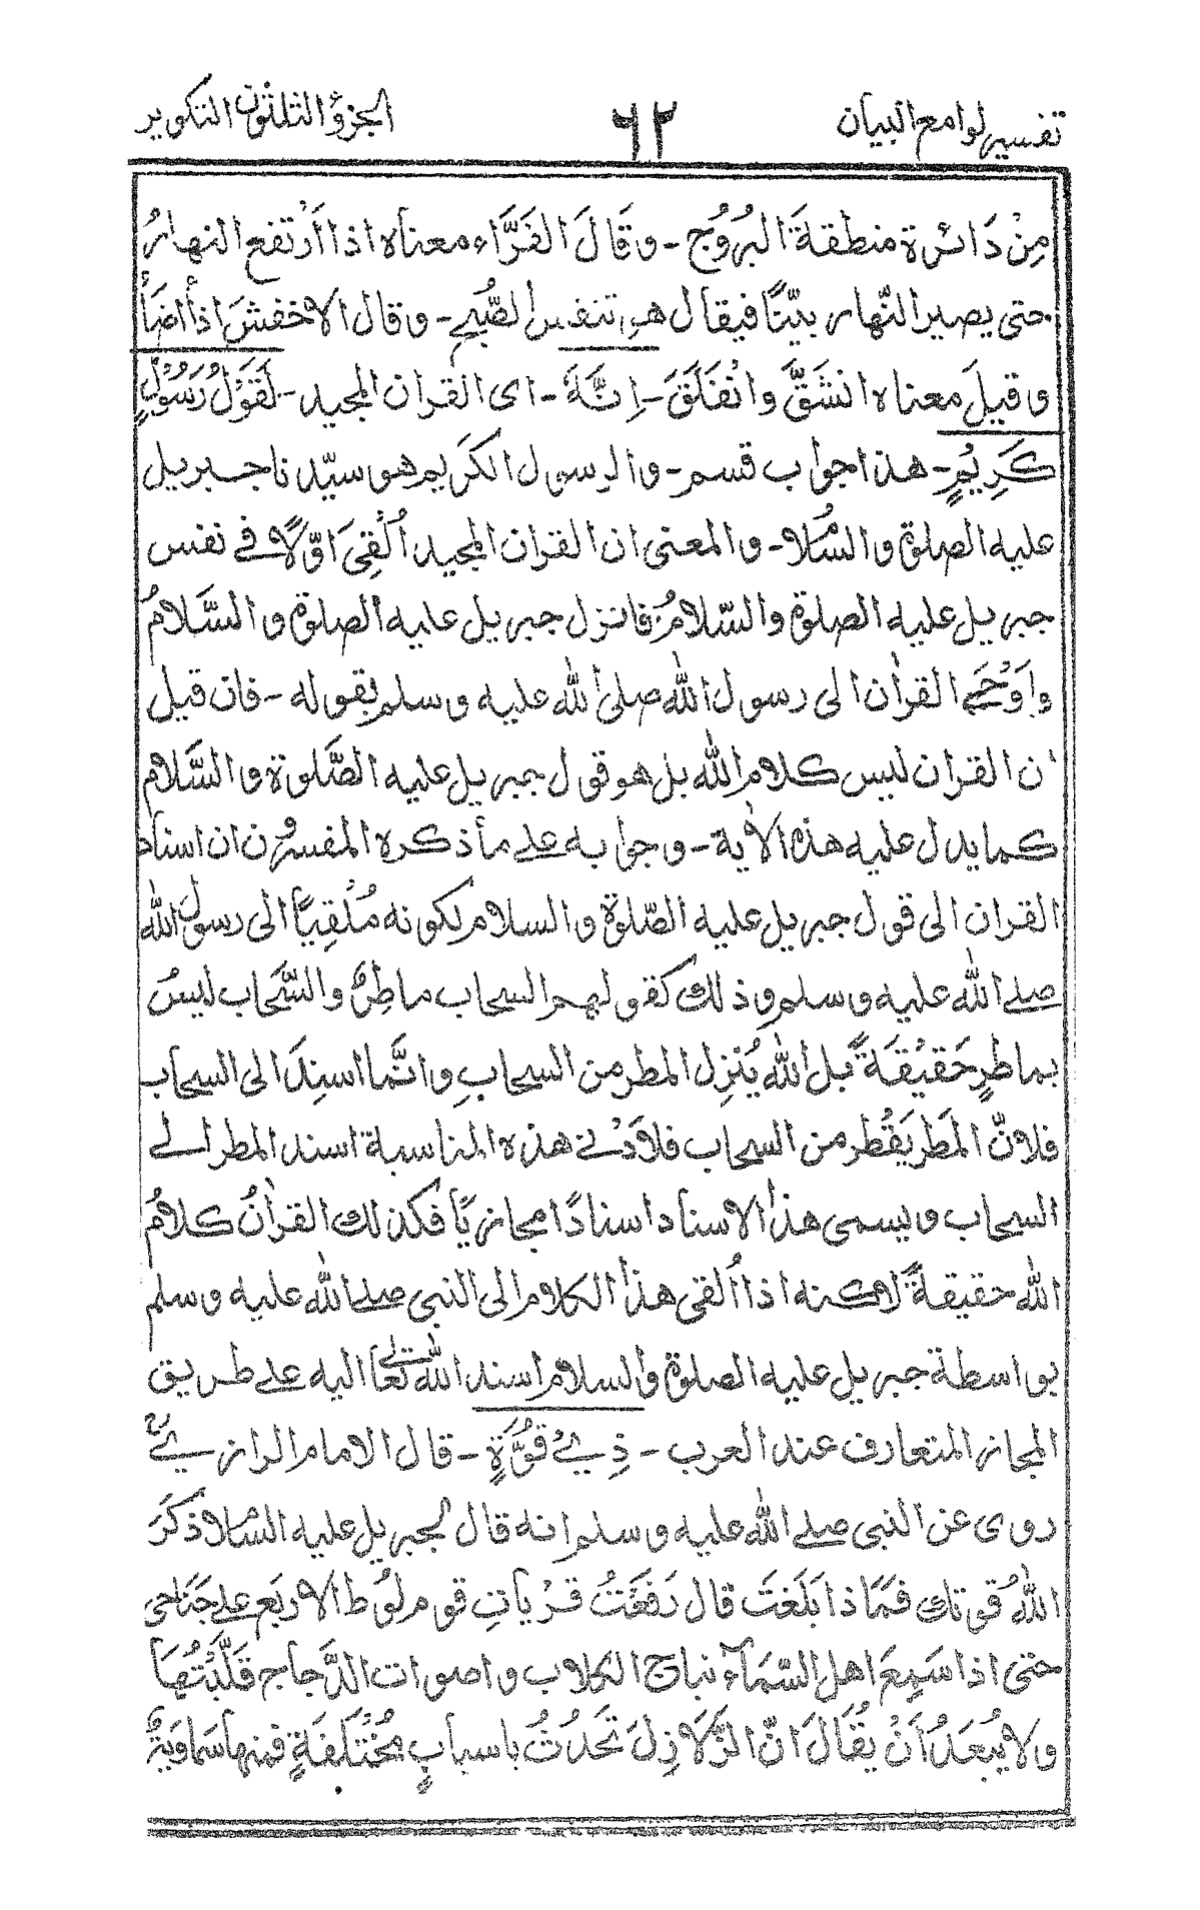 تفسير لوامع البيان ٦٢ الجزؤ الثلثون التكوير
مِنْ دَائرة منطقةَ البُرُوْج - وقَالَ الفَرَّاء معناه اذا ارْتفع النهارُ
حتى يصير النّهار بيّنًا فيقال هو تنفس الصُّبح - وقال الاخفشَ اذا اضَأَ
وقيلَ معناه انشَقَّ وانْفَلَقَ - اِنَّهٗ - اى القران المجيد - لَقَوْلُ رَسُوْلٍ
كَرِيْمٍ - هذا جواب قسم - والرسول الكَريم هو سيّدنا جبريل
عليه الصلوة والسّلام - والمعنى ان القران المجيد اُلْقِىَ اوّلًا فے نفس
جبريل عليه الصلوة والسّلامُ فانزل جبريل عليه الصلوة والسَّلامُ
واَوْحَے القرٰان الى رسول اللّٰه صلى اللّٰه عليه وسلم بقوله - فان قيل
ان القران ليس كلام اللّٰه بل هو قول جبريل عليه الصَّلوة والسَّلام
كما يدل عليه هذه الاٰية - وجوابه علے مأذكره المفسرون ان اسناد
القران الى قول جبريل عليه الصّلوة والسلام لكونه مُلْقِيًا الى رسول اللّٰه
صلے اللّٰه عليه وسلم وذلك كقولهم السحاب ماطِرٌ والسَّحَاب ليسَ
بماطرٍ حَقيْقَةً بل اللّٰه يُنْزِل المطر من السحابِ وانَّما اسنِدَ الى السحاب
فلانّ المَطر يَقْطر من السحاب فلاَدْنٰے هذه المناسبة اسند المطر الے
السحاب ويسمى هذا الاسناد اسنادًا مجازيًا فكذلك القراٰنُ كلامُ
اللّٰه حقيقةً لاكنه اذا اُلقى هذا الكلام الى النبى صلے اللّٰه عليه وسلم
بواسطة جبريل عليه الصلوة والسلام اسند اللّٰه تعالے اليه علے طريق
المجاز المتعارف عند العرب - ذِيْ قُوَّةٍ - قال الامام الرازیؒ
روى عن النبى صلے اللّٰه عليه وسلم انه قال لجبريل عليه السّلام ذكَرَ
اللّٰهُ قوتك فمَا ذا بَلَغتَ قال رَفَعْتُ قرْيات قوم لُوْط الاربَع علے جَنَاحى
حتى اذا سَمِعَ اهل السّمَآء نباح الكلاب واصوات الدَّجاج قَلَّبْتُهَا
ولا يُبعَدُ اَنْ يُقَالَ انّ الزَّلاَزِلَ تَحَدُثُ باسبابٍ مُخْتَلِفَةٍ فمنها سَماوِيَّةٌ